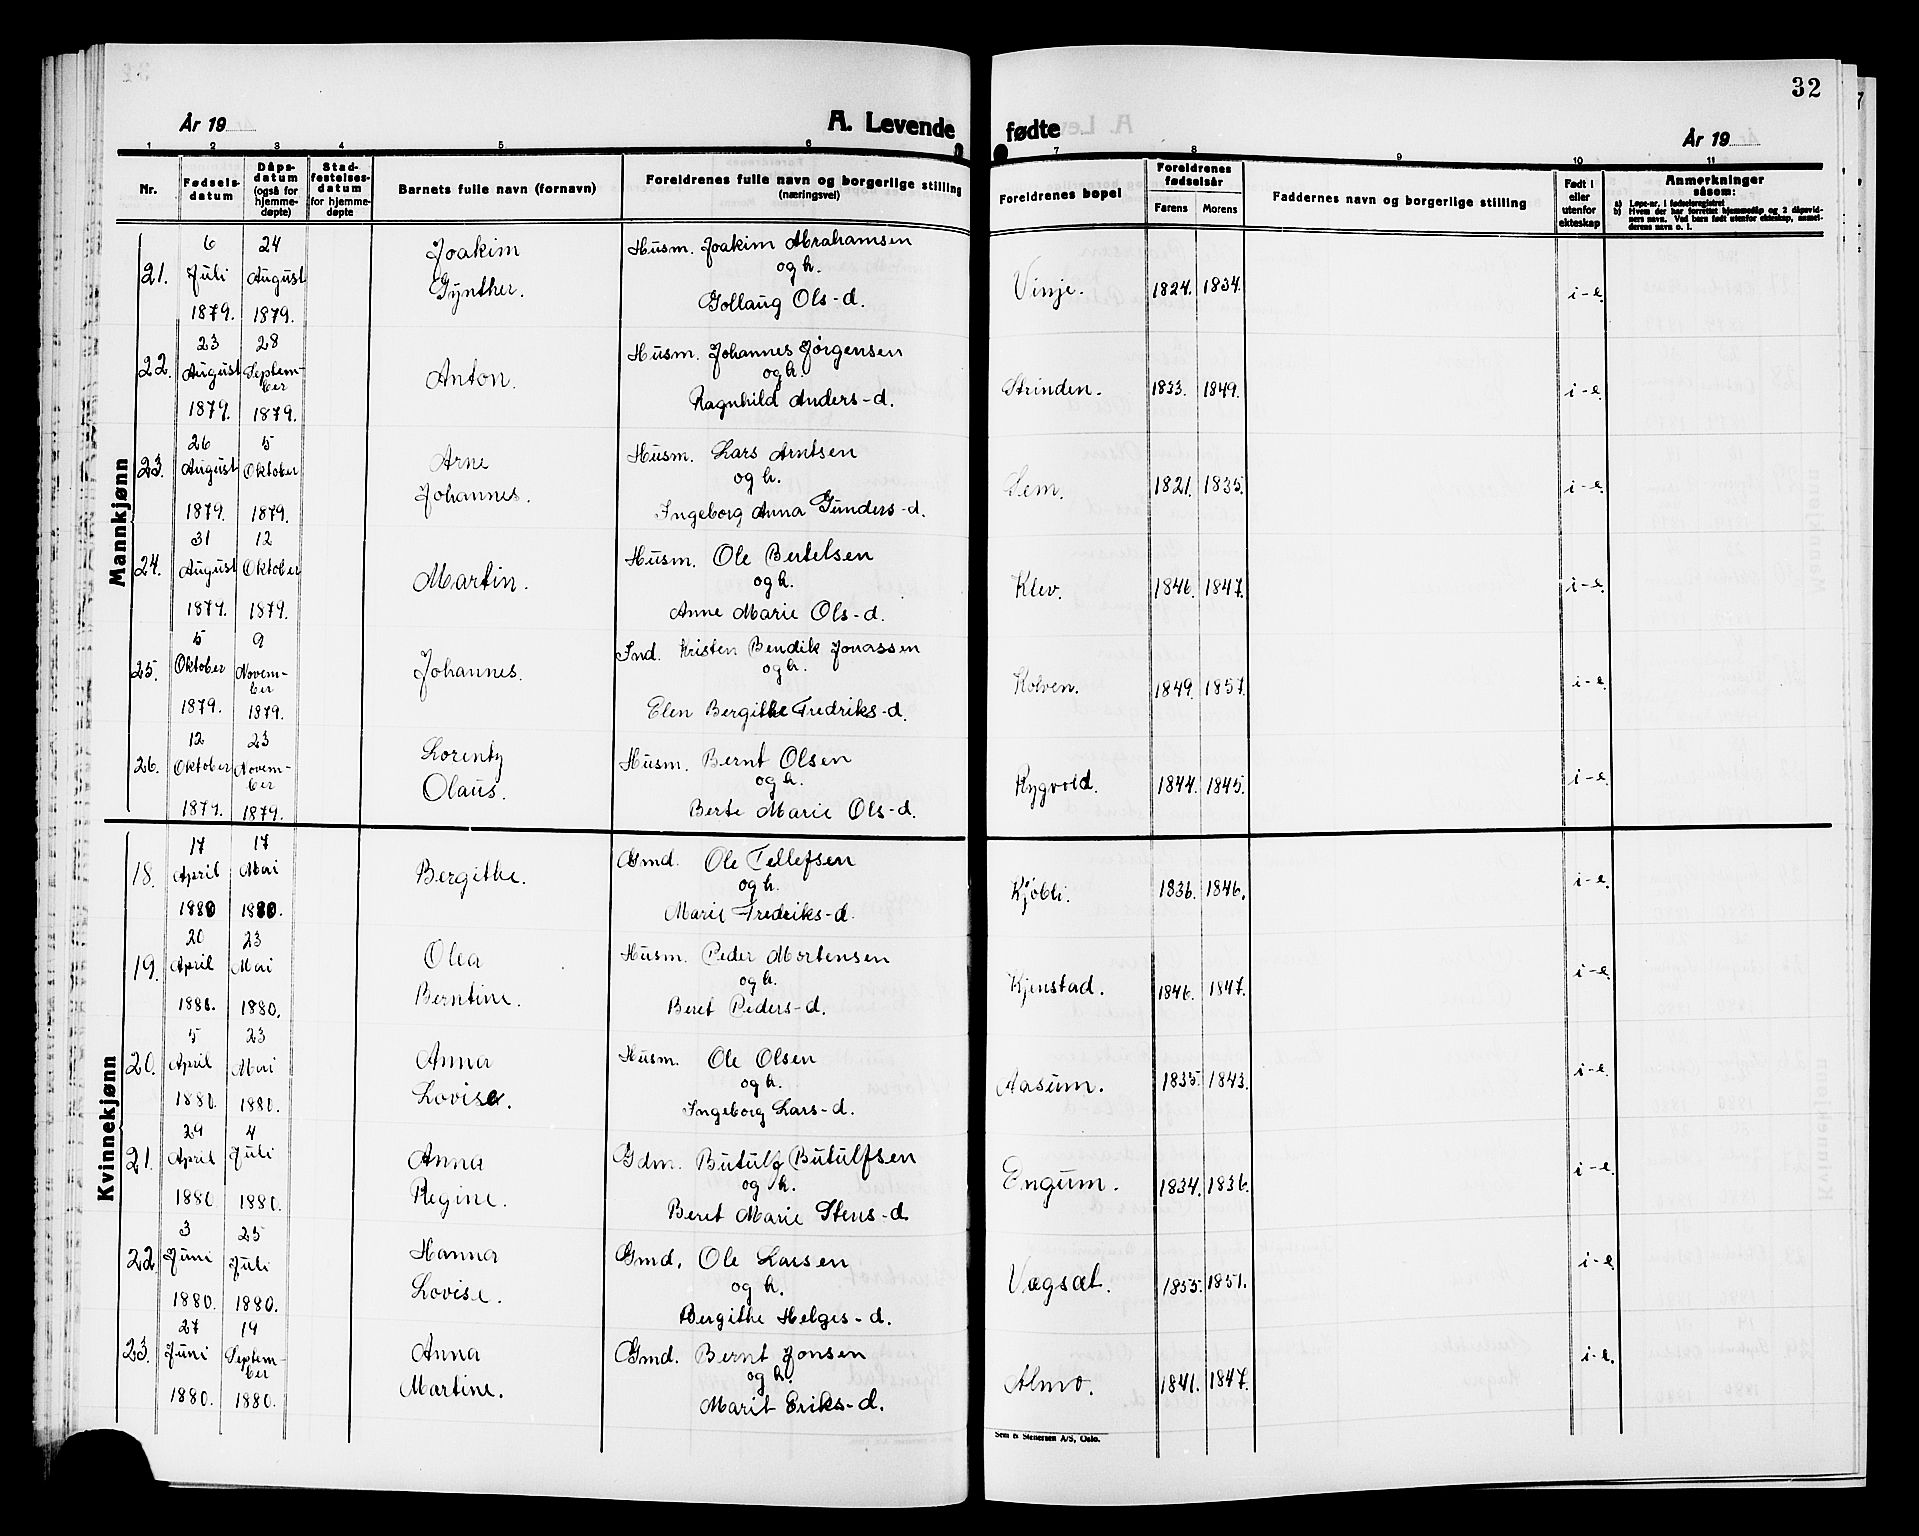 32
År 19
A. Levende
fødte
År 19
1 2 3 4 5 6 7 8 9 10 11
Nr.
Fødsels-
datum
Dåps-
datum
(også for
hjemme-
døpte)
Stad-
festelses-
datum
for hjemme-
døpte
Barnets fulle navn (fornavn)
Foreldrenes fulle navn og borgerlige stilling
(næringsvei)
Foreldrenes bopel
Foreldrenes
fødselsår
Farens
Morens
Faddernes navn og borgerlige stilling
Født i
eller
utenfor
ekteskap
Anmerkninger
såsom:
a) Løpe-nr. i fødselsregistret
b) Hvem der har forrettet hjemmedåp og 2 dåpsvid-
ners navn. Ved barn født utenfor ekteskap, anmel-
derens navn o. l.
Mannkjønn
21. 6 Juli 1879. 24 August 1879. Joakim Gynther. Husm. Joakim Abrahamsen
og h.
Gollaug Ols-d. Vinje. 1824. 1834. i-e.
22. 23 August 1879. 28 Septem-ber 1879. Anton. Husm. Johannes Jørgensen
og h.
Ragnhild Anders-d. Strinden. 1833. 1849. i-e.
23. 26 August 1879. 5 Oktober 1879. Arne Johannes. Husm. Lars Arntsen
og h.
Ingeborg Anna Gunders-d. Sem. 1821. 1835. i-e.
24. 31 August 1879. 12 Oktober 1879. Martin. Husm. Ole Bertelsen
og h.
Anne Marie Ols-d. Klev. 1846. 1847. i-e.
25. 5 Oktober 1879. 9 Novem-ber 1879. Johannes. Ind. Kristen Bendik Jonassen
og h.
Elen Bergithe Fredriks-d. Kolven. 1849. 1857. i-e.
26. 12 Oktober 1879. 23 Novem-ber 1879. Lorentz Olaus. Husm. Bernt Olsen
og h.
Berte Marie Ols-d. Rygvold. 1844. 1845. i-e.
Kvinnekjønn
18. 17 April 1880 17 Mai 1880. Bergithe. Gmd. Ole Tellefsen
og h.
Marie Fredriks-d. Kjøbli. 1836. 1846. i-e.
19. 20 April 1880. 23 Mai 1880. Olea Berntine. Husm. Peder Mortensen
og h.
Beret Peders-d. Kjenstad. 1846. 1847. i-e.
20. 5 April 1880. 23 Mai 1880. Anna Lovise. Husm. Ole Olsen
og h.
Ingeborg Lars-d. Aasum. 1835. 1843. i-e.
21. 29 April 1880. 4 Juli 1880. Anna Regine. Gdm. Butulf Butulfsen
og h.
Beret Marie Stens-d Engum. 1834. 1836. i-e.
22. 3 Juni 1880. 25 Juli 1880. Hanna Lovise. Gmd. Ole Larsen
og h.
Bergithe Helges-d. Vægsæt. 1855. 1851. i-e.
23. 27 Juni 1880. 19 Septem-ber 1880. Anna Martine. Gmd. Bernt Jonsen
og h.
Marit Eriks-d. Almo. 1841. 1847. i-e.
Sem & Stenersen A/S, Oslo.